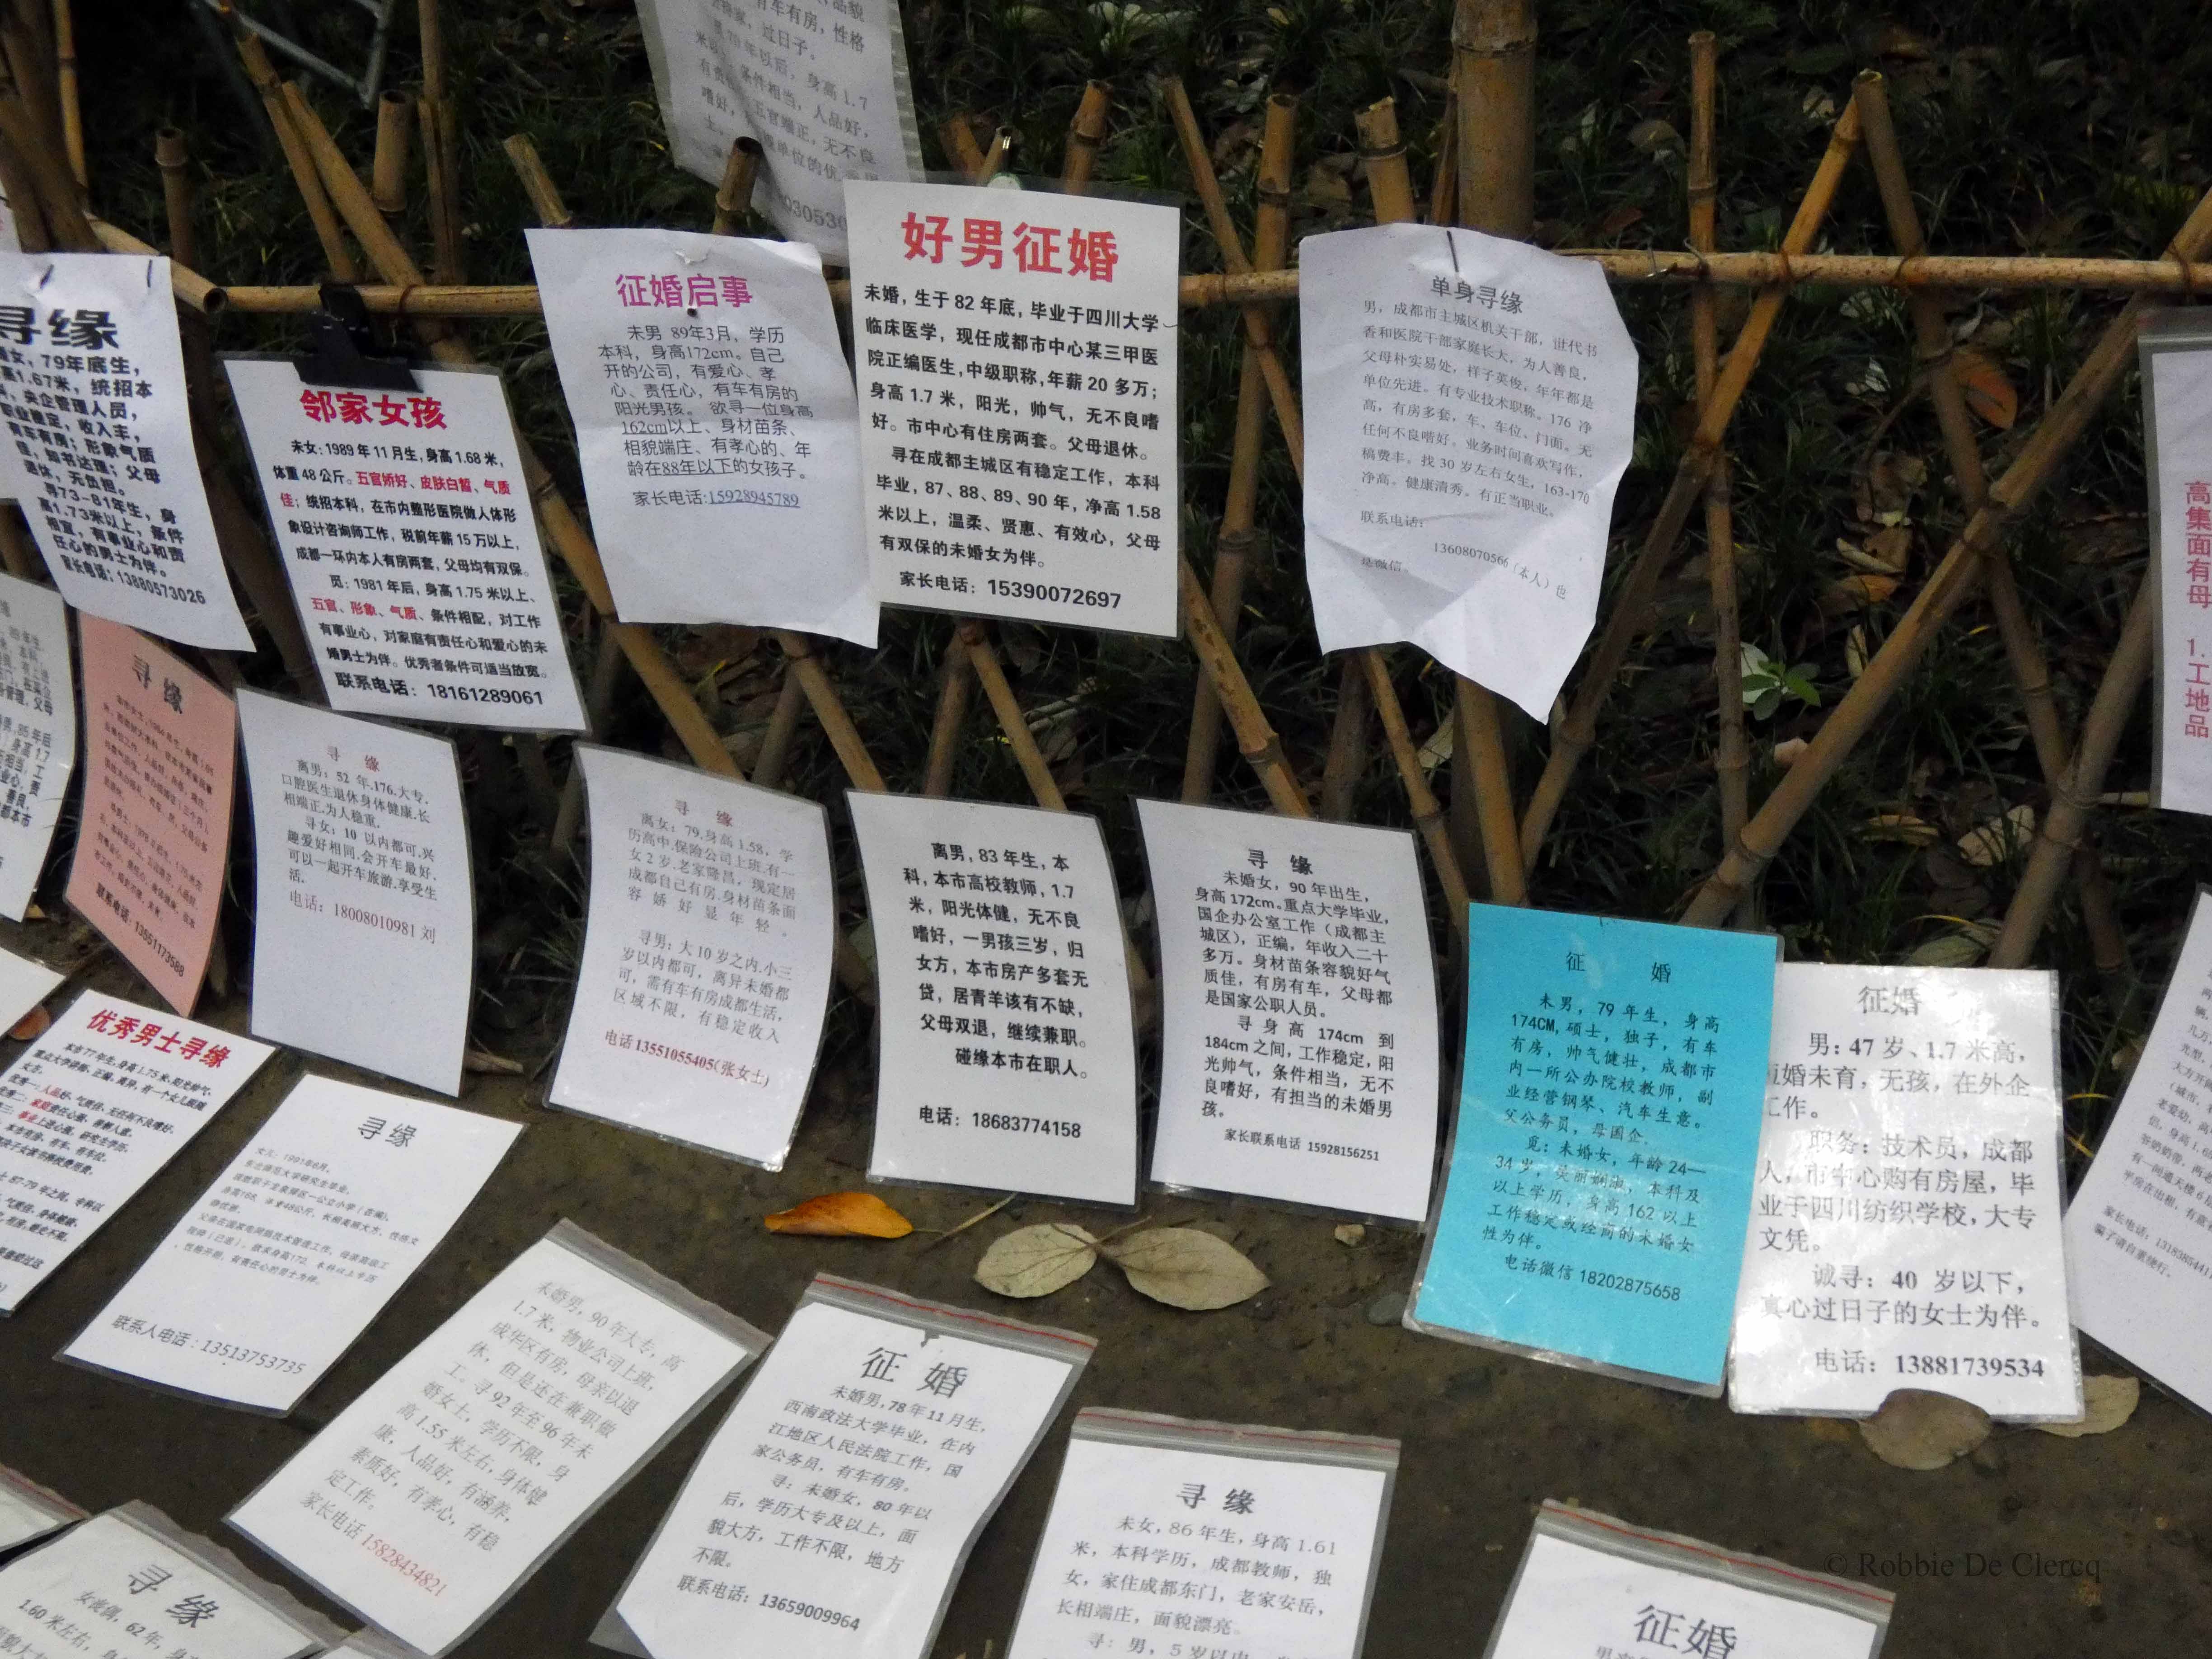 寻缘
女，79年底生，
高1.67米，统招本
央企管理人员，
职业稳定，收入丰，
有车有房；形象气质
佳，知书达理；父母
退休，无负担。
寻73-81年生，身
高1.73米以上，条件
相宜，有事业心和责
任心的男士为伴。
家长电话：13880573026
邻家女孩
未女：1989年11月生，身高1.68米，
体重48公斤。五官娇好、皮肤白皙、气质
佳；统招本科，在市内整形医院做人体形
象设计咨询师工作，税前年薪15万以上，
成都一环内本人有房两套，父母均有双保。
觅：1981年后，身高1.75米以上、
五官、形象、气质、条件相配，对工作
有事业心，对家庭有责任心和爱心的未
婚男士为伴。优秀者条件可适当放宽。
联系电话：18161289061
征婚启事
未男 89年3月，学历
本科，身高172cm。自己
开的公司，有爱心、孝
心、责任心，有车有房的
阳光男孩。欲寻一位身高
162cm以上、身材苗条、
相貌端庄、有孝心的、年
龄在88年以下的女孩子。
家长电话:15928945789
有车有房，性格
过日子。
年以后，身高1.7
条件相当，人品好，
五官端正，无不良
单位的优
好男征婚
未婚，生于82年底，毕业于四川大学
临床医学，现任成都市中心某三甲医
院正编医生，中级职称，年薪20多万；
身高1.7米，阳光，帅气，无不良嗜
好。市中心有住房两套。父母退休。
寻在成都主城区有稳定工作，本科
毕业，87、88、89、90年，净高1.58
米以上，温柔、贤惠、有效心，父母
有双保的未婚女为伴。
家长电话：15390072697
单身寻缘
男，成都市主城区机关干部，世代书
香和医院干部家庭长大，为人善良，
父母朴实易处，样子英俊，年年都是
单位先进。有专业技术职称。176净
高，有房多套，车、车位、门面。无
任何不良嗜好。业务时间喜欢写作，
稿费丰。找30岁左右女生，163-170
净高。健康清秀。有正当职业。
联系电话：
13608070566（本人）也
是微信。
高
集
面
有
母
1.
工
地
品
寻 缘
联系电话：13551173588
寻 缘
离男：52年.176.大专.
口腔医生退休身体健康.长
相端正.为人稳重.
寻女：10以内都可.兴
趣爱好相同.会开车最好.
可以一起开车旅游.享受生
活.
电话：18008010981 刘
寻 缘
离女：79.身高1.58，学
历高中.保险公司上班.有一
女2岁.老家隆昌，现定居
成都自己有房.身材苗条面
容娇好显年轻。
寻男：大10岁之内.小三
岁以内都可，离异未婚都
可，需有车有房成都生活，
区域不限，有稳定收入
电话13551055405(张女士)
离男，83年生，本
科，本市高校教师，1.7
米，阳光体健，无不良
嗜好，一男孩三岁，归
女方，本市房产多套无
贷，居青羊该有不缺，
父母双退，继续兼职。
碰缘本市在职人。
电话：18683774158
寻 缘
未婚女，90年出生，
身高172cm。重点大学毕业，
国企办公室工作（成都主
城区），正编，年收入二十
多万。身材苗条容貌好气
质佳，有房有车，父母都
是国家公职人员。
寻身高174cm到
184cm之间，工作稳定，阳
光帅气，条件相当，无不
良嗜好，有担当的未婚男
孩。
家长联系电话 15928156251
征 婚
未男，79年生，身高
174CM，硕士，独子，有车
有房，帅气健壮，成都市
内一所公办院校教师，副
业经营钢琴、汽车生意。
父公务员，母国企.
觅：未婚女，年龄24—
34岁，美丽娴淑，本科及
以上学历，身高162以上
工作稳定或经商的未婚女
性为伴。
电话微信18202875658
征婚
男：47岁、1.7米高，
短婚未育，无孩，在外企
工作。
职务：技术员，成都
人，市中心购有房屋，毕
业于四川纺织学校，大专
文凭。
诚寻：40岁以下，
真心过日子的女士为伴。
电话：13881739534
优秀男士寻缘
本市77年生，身高1.75米，阳光帅气，
寻缘
女儿：1991年6月，
东北师范大学研究生毕业，
联系人电话：13513753735
未婚男，90年大专，高
1.7米，物业公司上班，
成华区有房，母亲以退
休，但是还在兼职做
工。寻92年至96年未
婚女士，学历不限，身
高1.55米左右，身体健
康，人品好，有涵养，
素质好，有孝心，有稳
定工作。
家长电话15828434821
征 婚
未婚男，78年11月生，
西南政法大学毕业，在内
江地区人民法院工作，国
家公务员，有车有房。
寻：未婚女，80年以
后，学历大专及以上，面
貌大方，工作不限，地方
不限。
联系电话：13659009964
寻 缘
未女，86年生，身高1.61
米，本科学历，成都教师，独
女，家住成都东门，老家安岳，
长相端庄，面貌漂亮。
寻：男，5岁以内
征婚
寻 缘
女丧偶，62年，身
1.60米左右，
© Robbie De Clercq